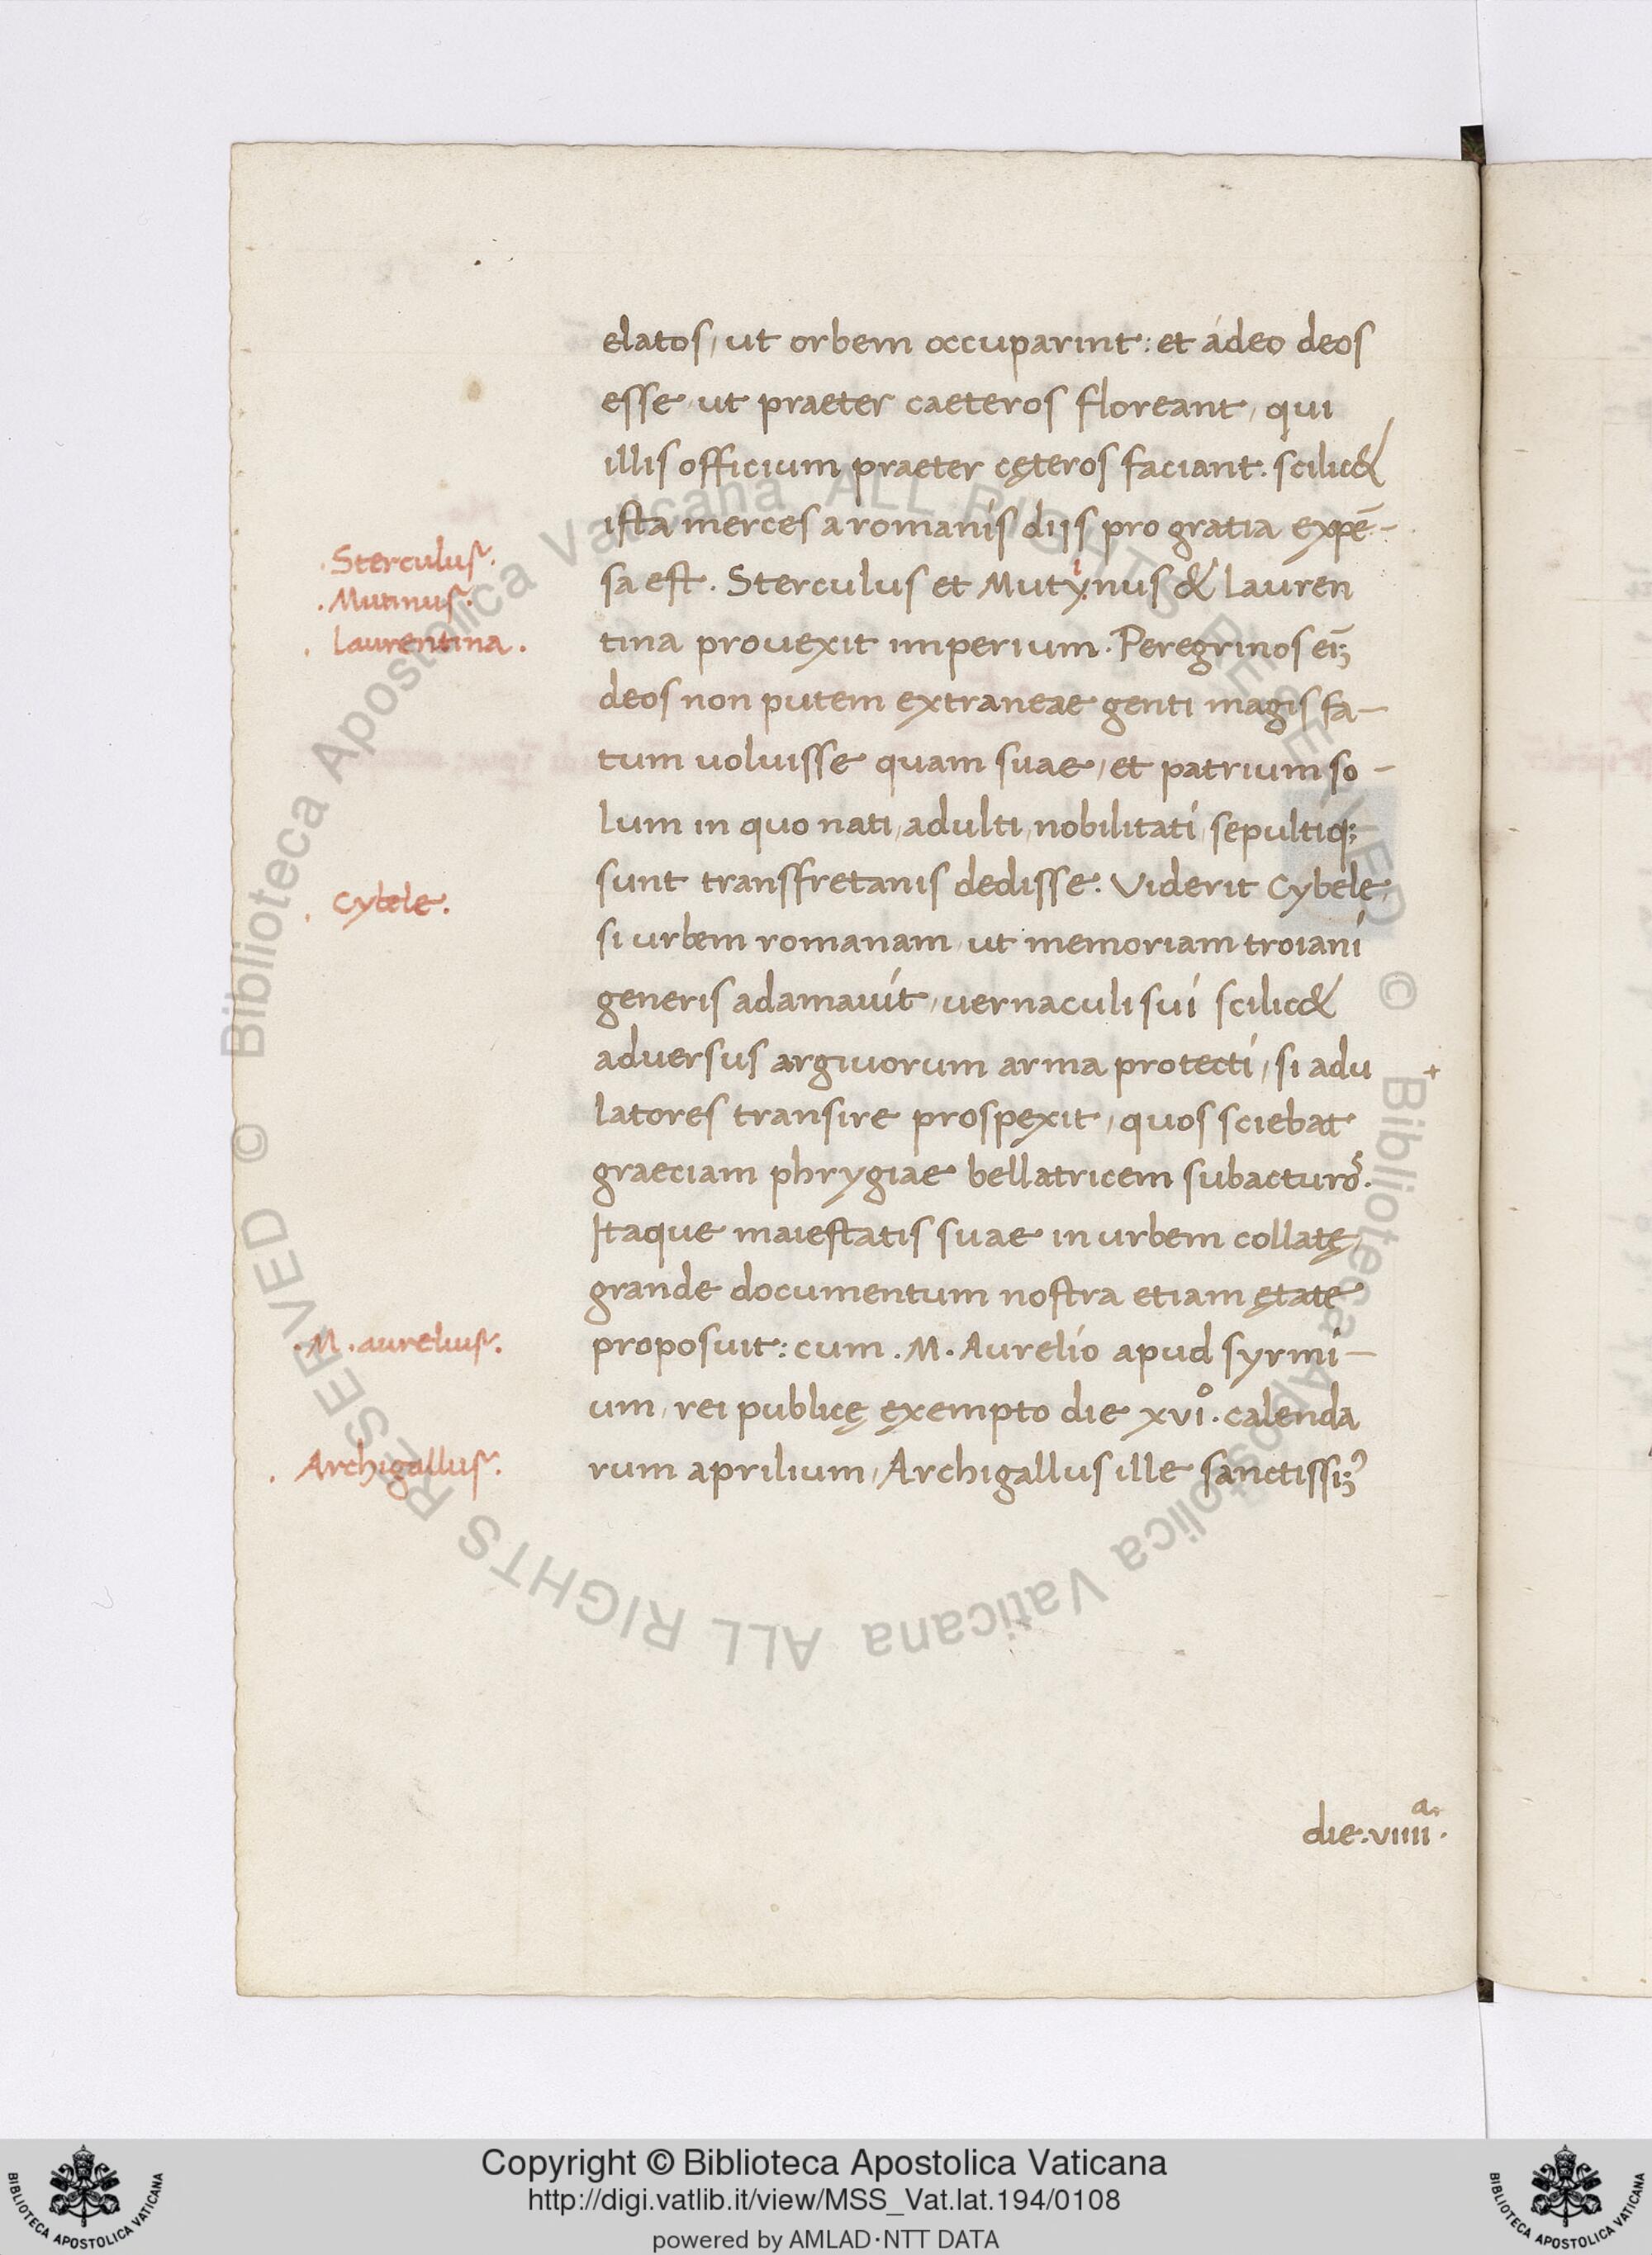 elatos, ut orbem occuparint: et adeo deos
esse ut praeter caeteros floreant, qui
illis officium praeter cęteros faciant. scilic&
ista merces a romanis diis pro gratia expē-
sa est. Sterculus et Mutynus & Lauren
tina provexit imperium. Peregrinos ei̅ʒ
deos non putem extraneae genti magis fa-
tum voluisse quam suae, et patrium so-
lum in quo nati, adulti, nobilitati, sepultiq;
sunt transfretanis dedisse. Viderit Cybele,
si urbem romanam ut memoriam troiani
generis adamavit, vernaculi sui scilic&
adversus argivorum arma protecti, si adu +
latores transire prospexit, quos sciebat
graeciam phrygiae bellatricem subacturoˢ.
Itaque maiestatis suae in urbem collatę
grande documentum nostra etiam ętate
proposuit: cum .M. Aurelio apud syrmi-
um, rei publicę exempto die xvi°. calenda
rum aprilium, Archigallus ille sanctissiʒ⁹
.Sterculus.
.Mutinus.
.Laurentina.
.Cybele.
.M. aurelius.
.Archigallus.
die.viiiiª.
© Biblioteca Apostolica Vaticana ALL RIGHTS RESERVED
© Biblioteca Apostolica Vaticana ALL RIGHTS RESERVED
Copyright © Biblioteca Apostolica Vaticana
http://digi.vatlib.it/view/MSS_Vat.lat.194/0108
powered by AMLAD·NTT DATA
BIBLIOTECA APOSTOLICA VATICANA
BIBLIOTECA APOSTOLICA VATICANA